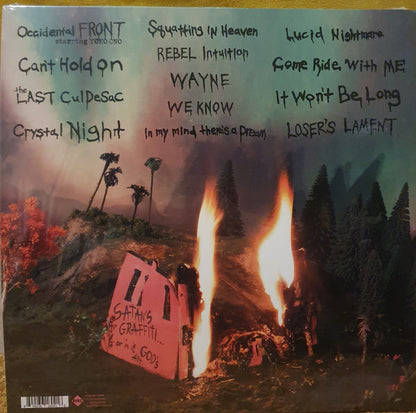 Occidental FRONT
starring YOKO ONO
Can't Hold on
the
LAST Cul De Sac
Crystal Night
Squatting in Heaven
REBEL Intuition
WAYNE
WE KNOW
in my mind, there's a Dream
Lucid Nightmare
Come Ride, With ME
It Won't Be, Long
LOSER'S LAMENT
SATAN'S
GRAFFITI...
or is it GOD'S